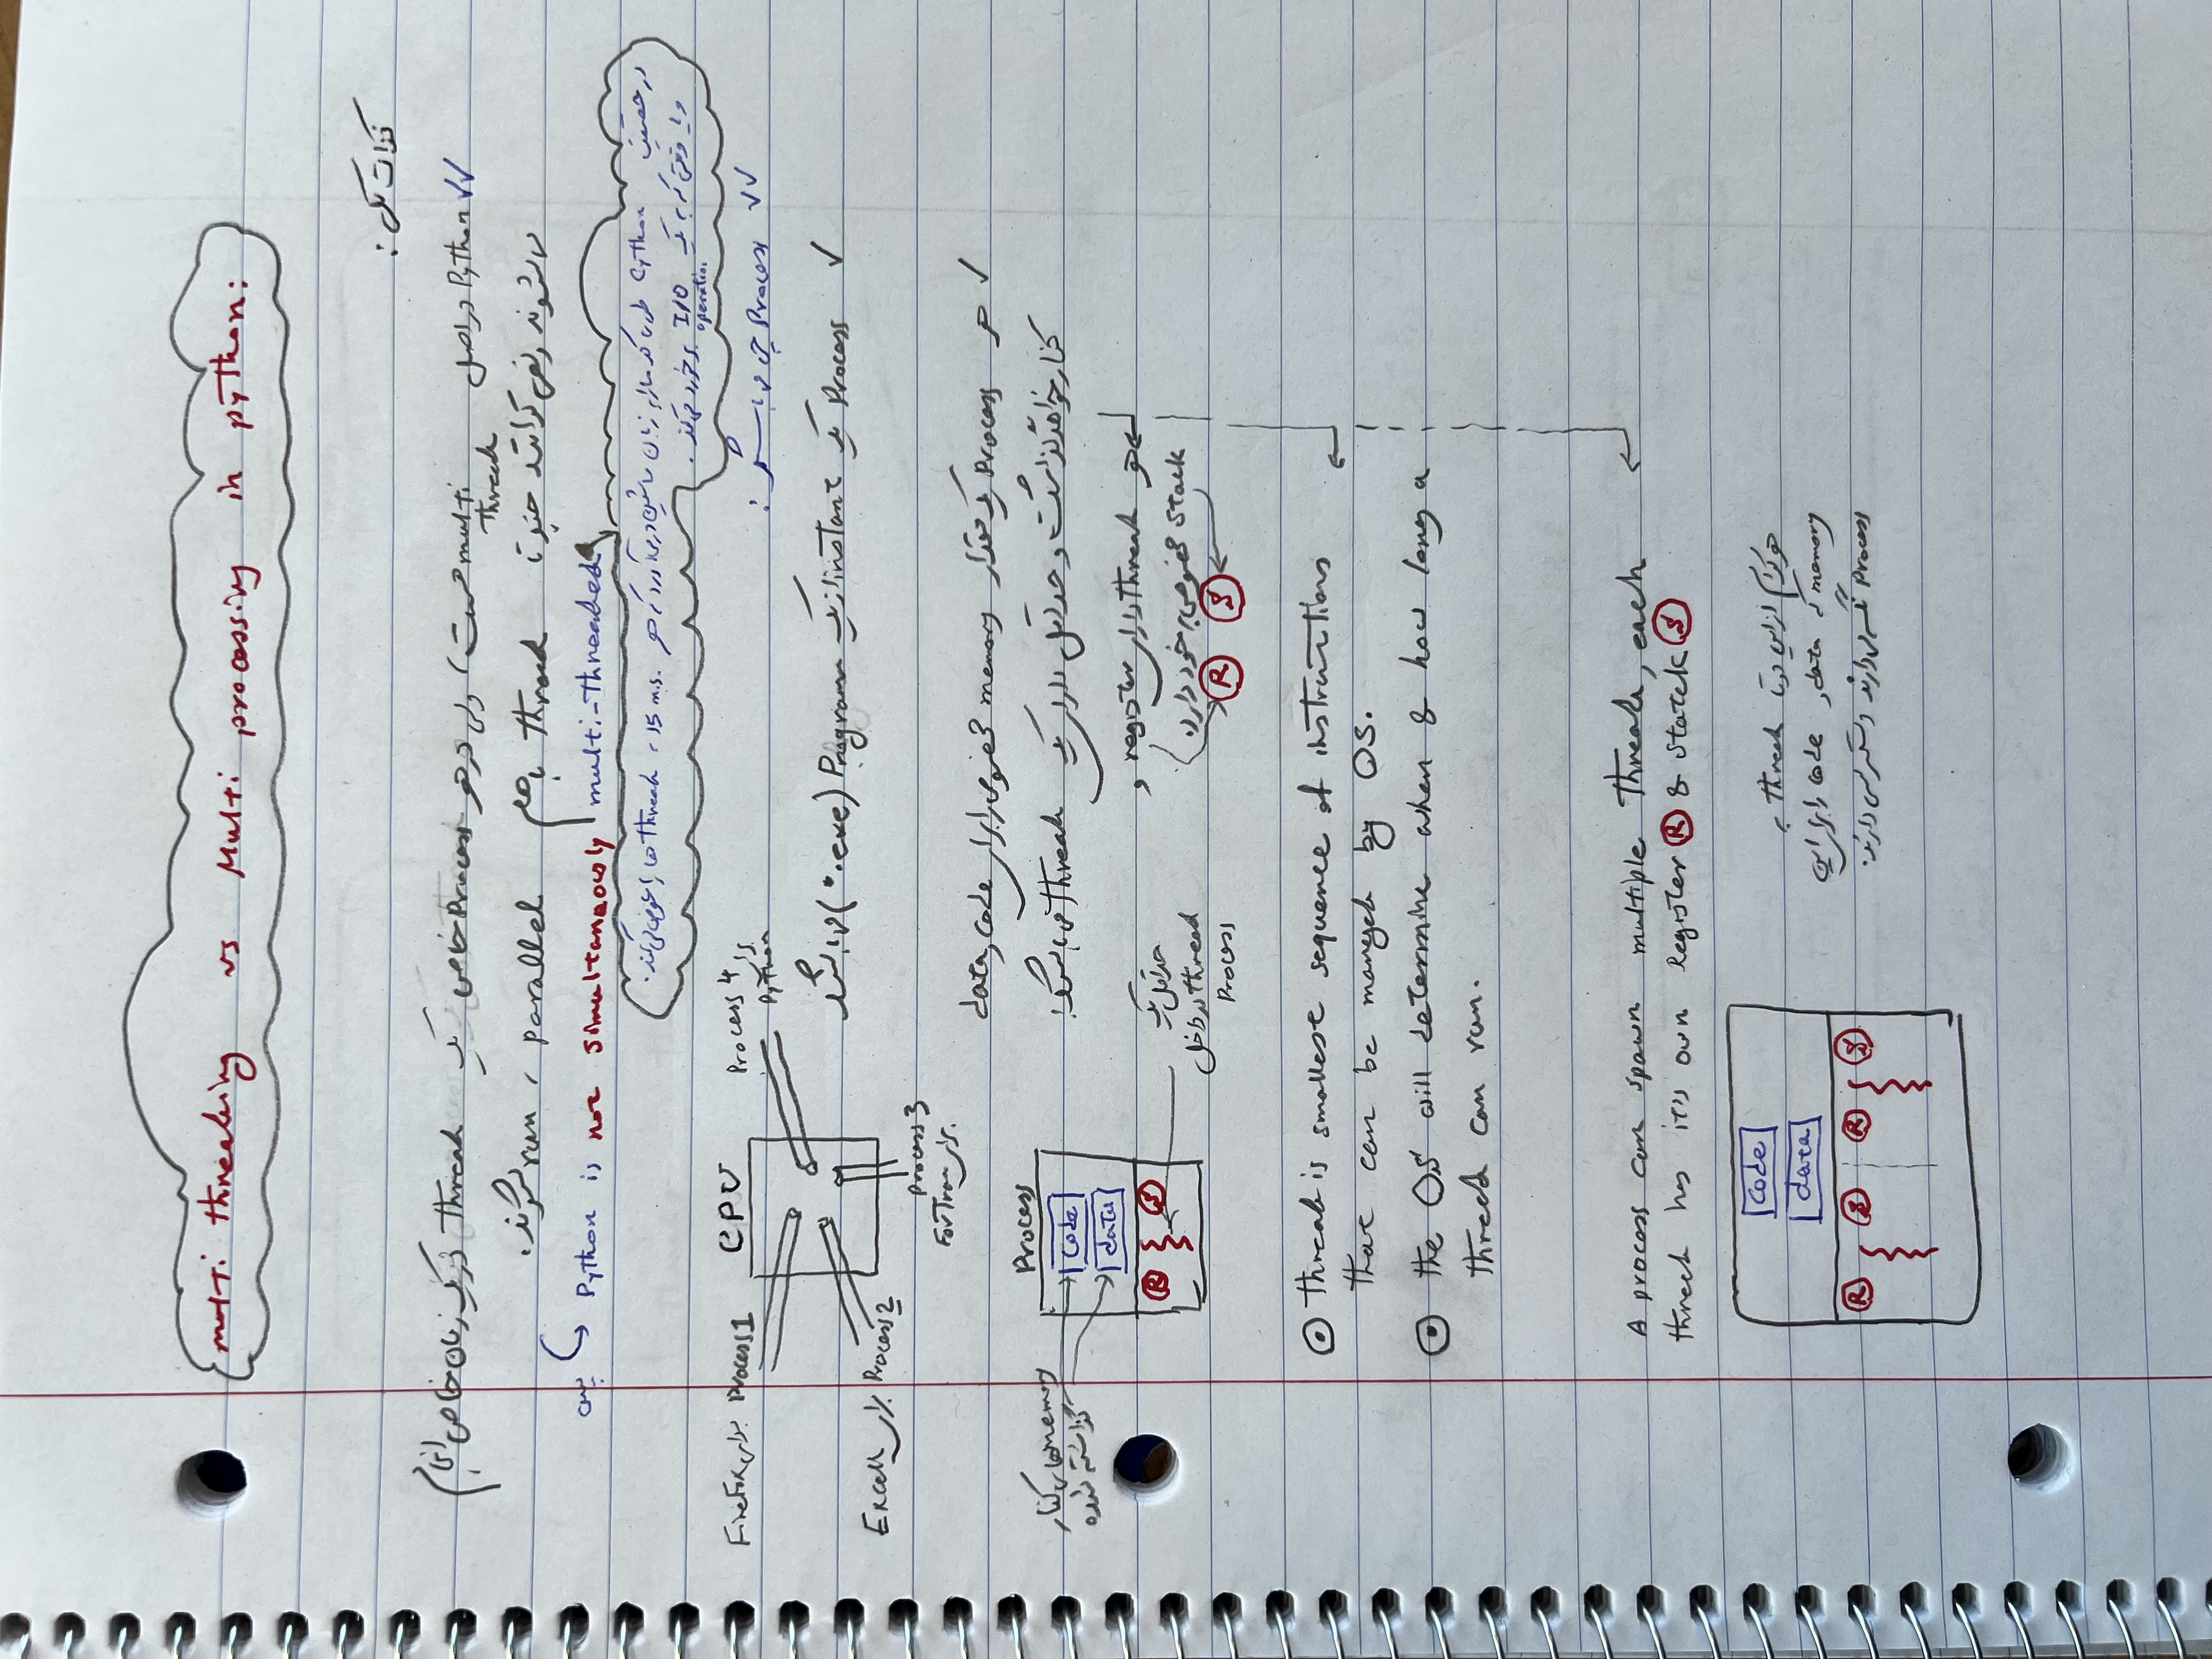 multi threading vs Multi processing in python:
نکات کلی :
✓✓ Python در اصل multi thread هست، ولی در هر Process خاص یک thread در یک زمان خاص انجام
می‌شوند و نمی‌توانند چند تا thread با هم parallel ، run شوند.
پس Python is not simultaneously multi-threaded
در حقیقت Cython طوری کد ما را به زبان ماشین در می‌آورد که هر 15 m.s. ، thread ها را عوض می‌کند.
و یا وقتی که به یک I/O operation برخورد می‌کند.
✓✓ Process چی می‌باشد :
CPU
Process 1 برای FireFox
Process 4 برای
Python
Process 2 برای Excell
Process 3
برای ForTran
✓ Process یک instant از یک Program (*.exe) می‌باشد
✓ هر Process یک مقدار memory مخصوص را برای code و data
کنار خواهد گذاشت و حداقل دارای یک thread می‌باشد:
Process
code
data
R S
memory های کنار
گذاشته شده
حداقل یک
thread در داخل
Process
هر thread دارای register و
Stack مخصوص به خود دارد.
R S
⊙ thread is smallest sequence of instructions
that can be manged by OS.
⊙ the OS will determine when & how long a
thread can run.
A process can spawn multiple threads, each
thread has it's own Register R & Statck S
code
data
R S R S
هر کدام از این دو تا thread به
memory که data و code را برای این
Process نگه می‌دارند دسترسی دارند.